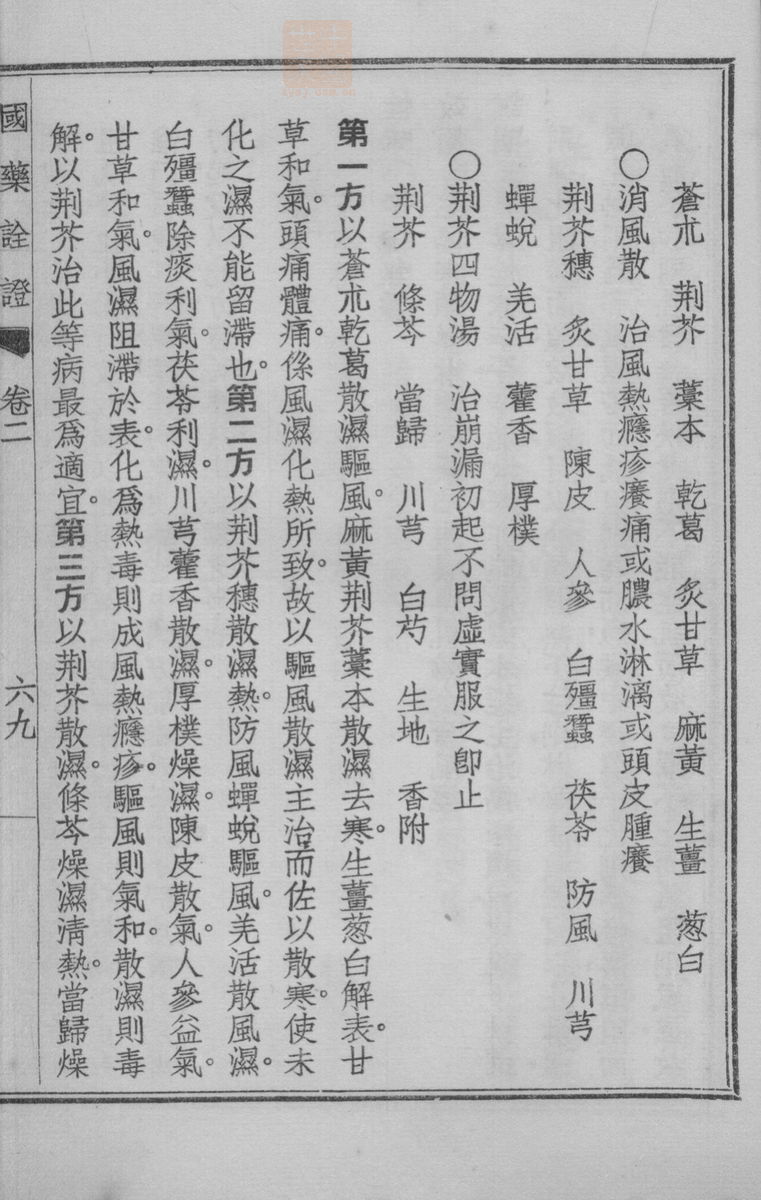 蒼朮　荆芥　藁本　乾葛　炙甘草　麻黃　生薑　葱白
〇消風散　治風熱癮疹癢痛或膿水淋漓或頭皮腫癢
荆芥穗　炙甘草　陳皮　人參　白殭蠶　茯苓　防風　川芎
蟬蛻　羌活　藿香　厚樸
〇荆芥四物湯　治崩漏初起不問虛實服之卽止
荆芥　條芩　當歸　川芎　白芍　生地　香附
第一方以蒼朮乾葛散濕驅風。麻黃荆芥藁本散濕去寒。生薑葱白解表。甘
草和氣。頭痛體痛。係風濕化熱所致。故以驅風散濕主治。而佐以散寒。使未
化之濕不能留滯也。第二方以荆芥穗散濕熱。防風蟬蛻驅風。羌活散風濕。
白殭蠶除痰利氣。茯苓利濕。川芎藿香散濕。厚樸燥濕。陳皮散氣。人參益氣。
甘草和氣。風濕阻滯於表。化爲熱毒則成風熱癮疹。驅風則氣和。散濕則毒
解。以荆芥治此等病最爲適宜。第三方以荆芥散濕。條芩燥濕淸熱。當歸燥
國藥詮證　卷二　六九